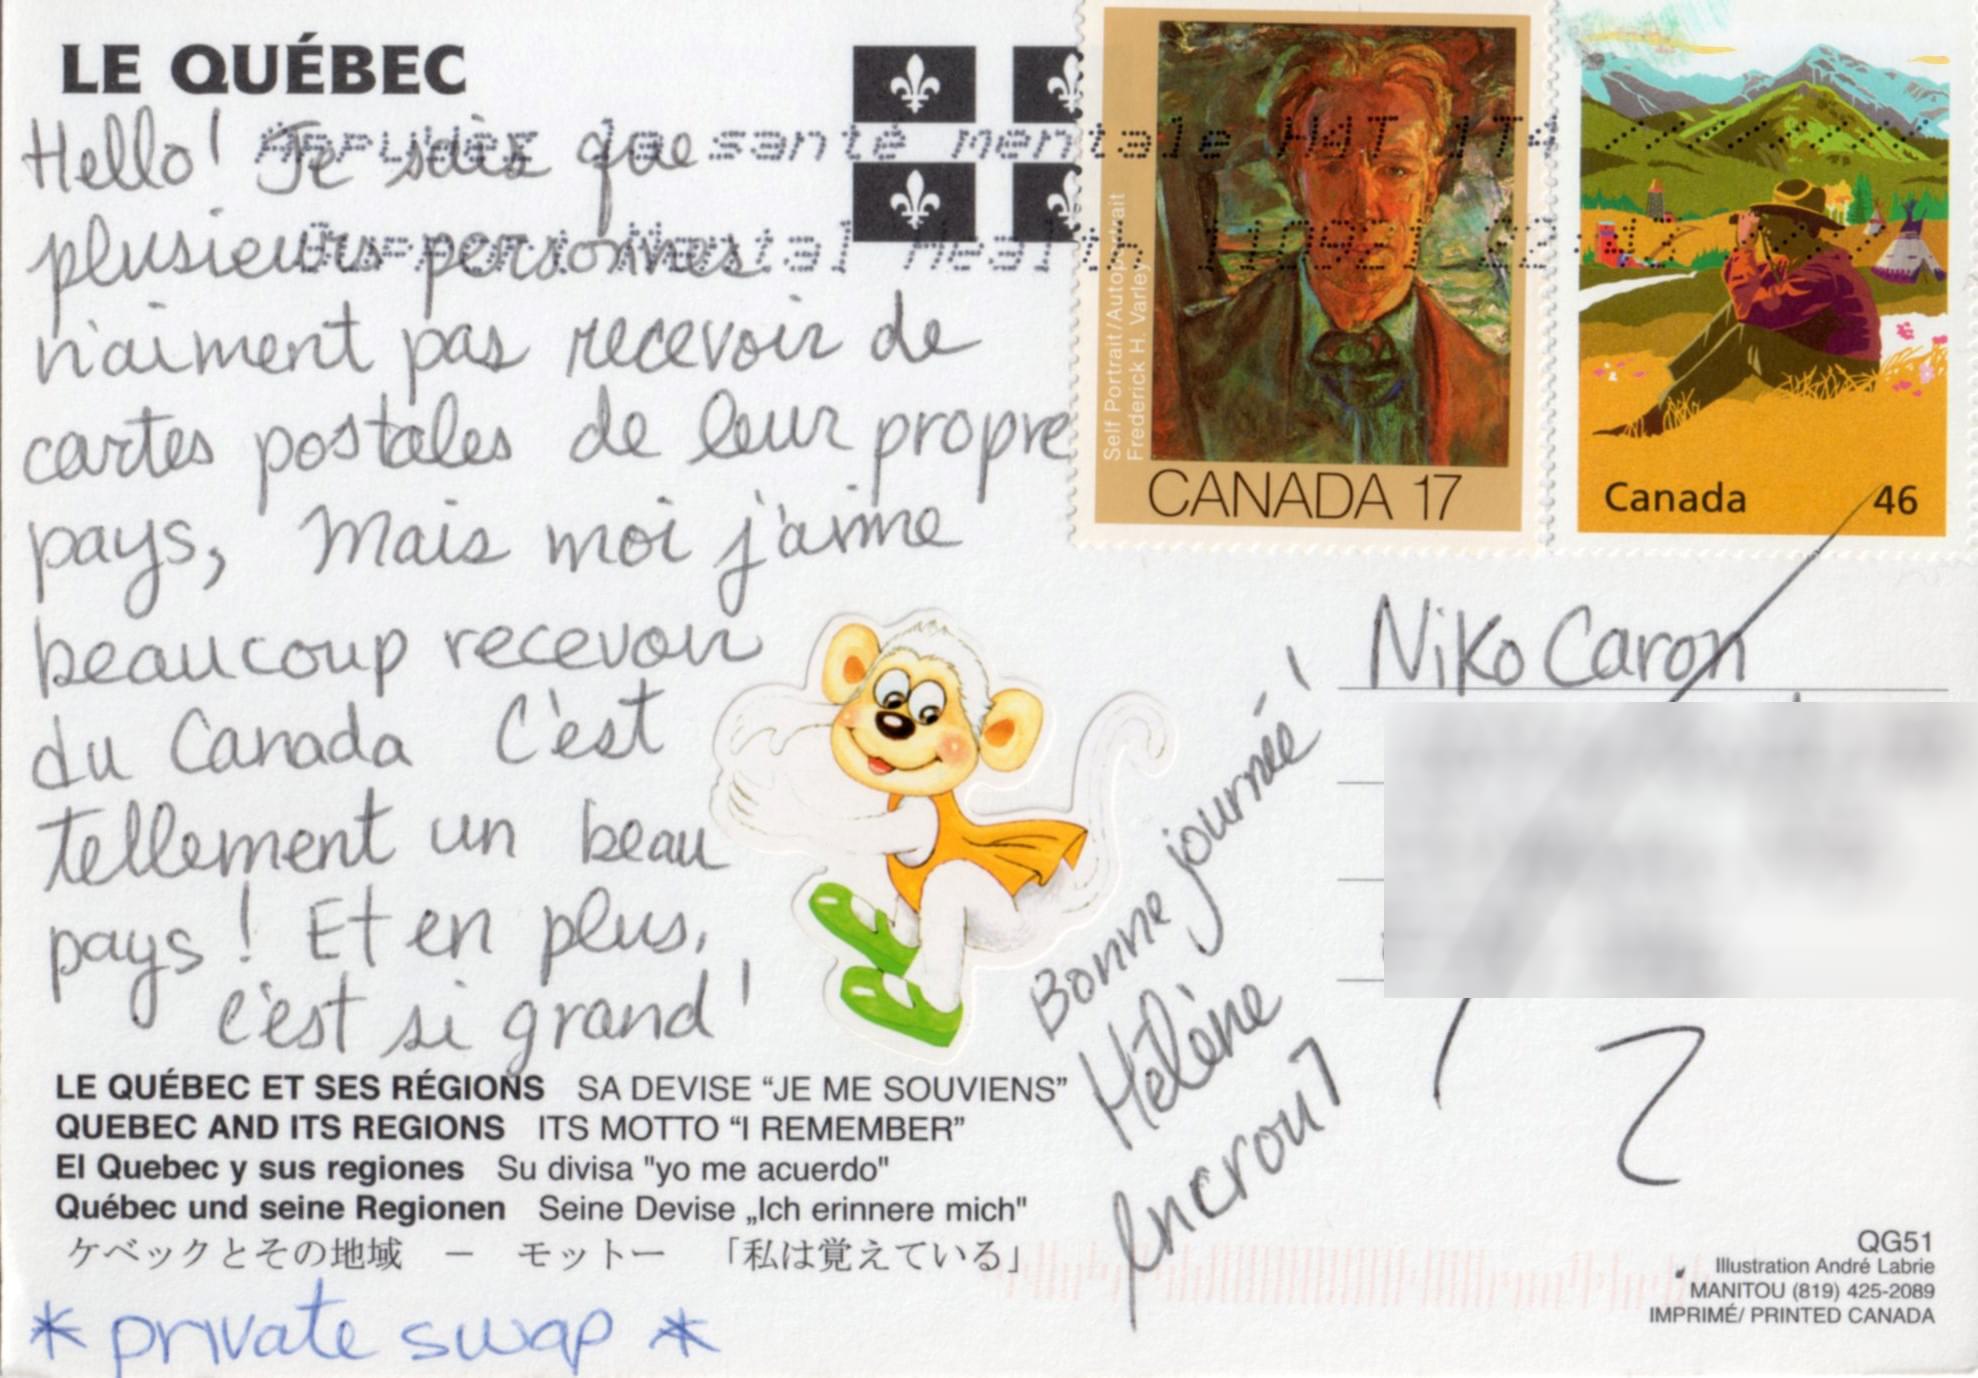 LE QUÉBEC
Hello! Je sais que
plusieurs personnes
n'aiment pas recevoir de
cartes postales de leur propre
pays, Mais moi j'aime
beaucoup recevoir
du Canada C'est
tellement un beau
pays ! Et en plus,
c'est si grand !
Bonne journée !
Hélène
Appuyez la santé mentale H4T 1T4
Support Mental Health
Self Portrait/Autoportrait
Frederick H. Varley
CANADA 17
Canada 46
Niko Caron
LE QUÉBEC ET SES RÉGIONS SA DEVISE “JE ME SOUVIENS”
QUEBEC AND ITS REGIONS ITS MOTTO “I REMEMBER”
El Quebec y sus regiones Su divisa "yo me acuerdo"
Québec und seine Regionen Seine Devise „Ich erinnere mich"
ケベックとその地域 ー モットー 「私は覚えている」
* private swap *
QG51
Illustration André Labrie
MANITOU (819) 425-2089
IMPRIMÉ/ PRINTED CANADA